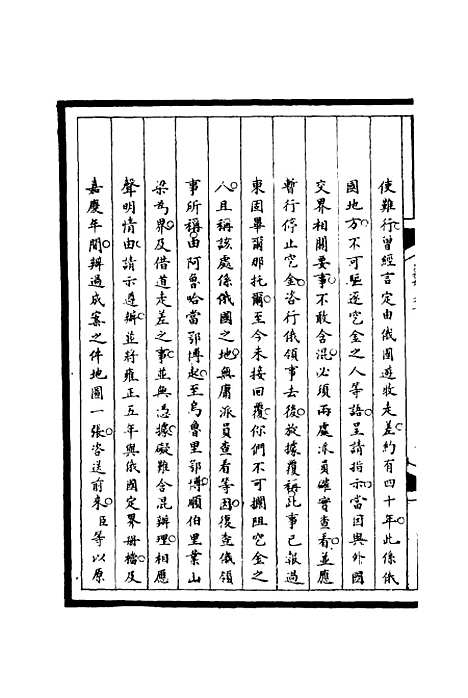 使難行曾經言定由俄國遊牧走差約有四十年此係俄
國地方不可驅逐空金之人等語呈請指示當因與外國
交界相關要事不敢含混必須兩處派員確實查看並應
暫行停止空金咨行俄領事去後玆據覆稱此事已報過
東固畢爾那托爾至今未接回覆你們不可攔阻空金之
八且稱該處係俄國之地無庸派員查看等因復查俄領
事所稱由阿魯哈當鄂博起至烏魯里鄂博順伯里業山
梁為界及借道走差之事並無憑據礙難含混辦理相應
聲明情由請示遵辦並將雍正五年與俄國定界冊檔及
嘉慶年間辦過成案之件地圖一張咨送前來臣等以原